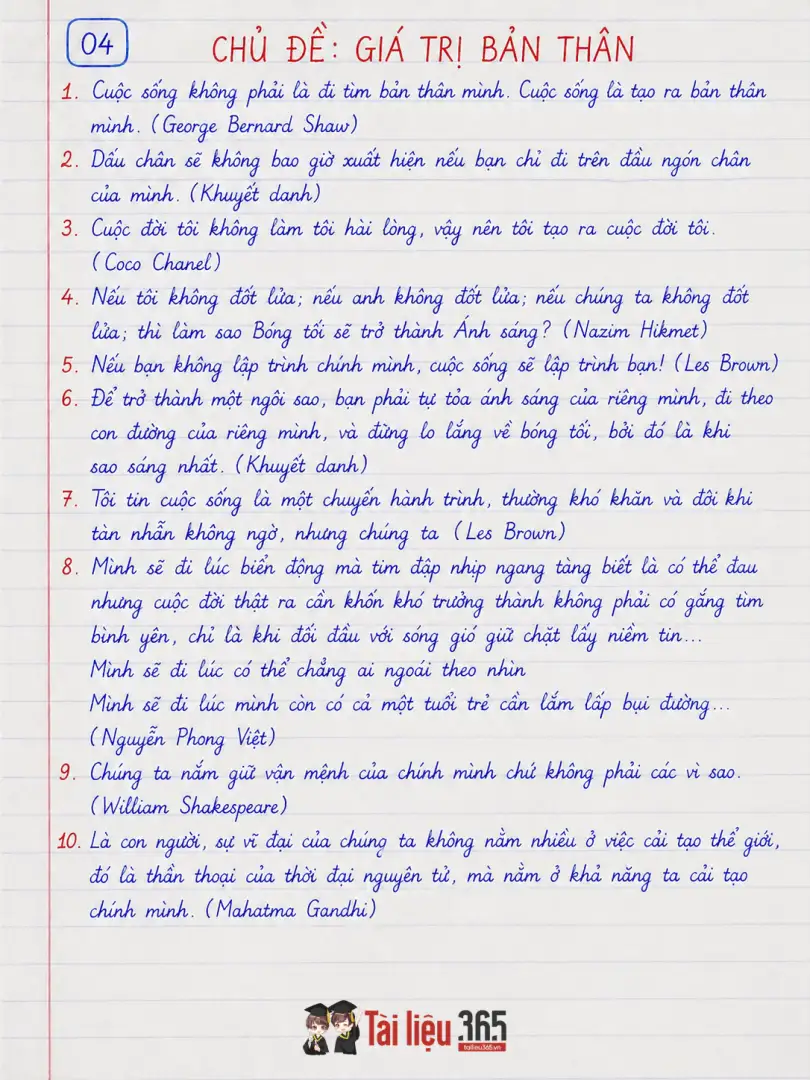 04
CHỦ ĐỀ: GIÁ TRỊ BẢN THÂN
1. Cuộc sống không phải là đi tìm bản thân mình. Cuộc sống là tạo ra bản thân
mình. (George Bernard Shaw)
2. Dấu chân sẽ không bao giờ xuất hiện nếu bạn chỉ đi trên đầu ngón chân
của mình. (Khuyết danh)
3. Cuộc đời tôi không làm tôi hài lòng, vậy nên tôi tạo ra cuộc đời tôi.
(Coco Chanel)
4. Nếu tôi không đốt lửa; nếu anh không đốt lửa; nếu chúng ta không đốt
lửa; thì làm sao Bóng tối sẽ trở thành Ánh sáng? (Nazim Hikmet)
5. Nếu bạn không lập trình chính mình, cuộc sống sẽ lập trình bạn! (Les Brown)
6. Để trở thành một ngôi sao, bạn phải tự tỏa ánh sáng của riêng mình, đi theo
con đường của riêng mình, và đừng lo lắng về bóng tối, bởi đó là khi
sao sáng nhất. (Khuyết danh)
7. Tôi tin cuộc sống là một chuyến hành trình, thường khó khăn và đôi khi
tàn nhẫn không ngờ, nhưng chúng ta (Les Brown)
8. Mình sẽ đi lúc biển động mà tim đập nhịp ngang tàng biết là có thể đau
nhưng cuộc đời thật ra cần khốn khó trưởng thành không phải có gắng tìm
bình yên, chỉ là khi đối đầu với sóng gió giữ chặt lấy niềm tin...
Mình sẽ đi lúc có thể chẳng ai ngoái theo nhìn
Mình sẽ đi lúc mình còn có cả một tuổi trẻ cần lắm lấp bụi đường...
(Nguyễn Phong Việt)
9. Chúng ta nắm giữ vận mệnh của chính mình chứ không phải các vì sao.
(William Shakespeare)
10. Là con người, sự vĩ đại của chúng ta không nằm nhiều ở việc cải tạo thế giới,
đó là thần thoại của thời đại nguyên tử, mà nằm ở khả năng ta cải tạo
chính mình. (Mahatma Gandhi)
Tài liệu 365
tailieu365.vn